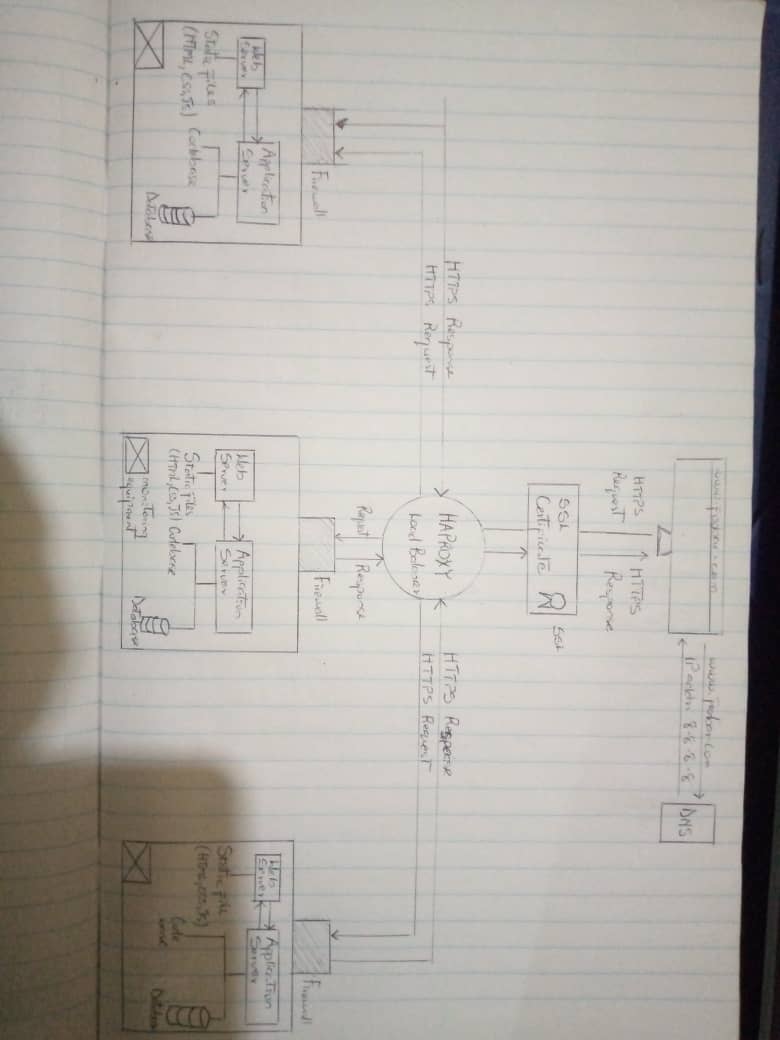 IP addr 8.8.8.8
DNS
HTTPS
Request
HTTPS
Response
SSL
Certificate
SSL
HAPROXY
Load Balancer
HTTPS Response
HTTPS Request
HTTPS Response
HTTPS Request
Firewall
Web
Server
Application
Server
Static files
(HTML, CSS, JS)
Codebase
Database
Request
Response
Firewall
Web
Server
Application
Server
Static files
(HTML, CSS, JS)
Codebase
Database
monitoring
equipment
Firewall
Web
Server
Application
Server
Static file
(HTML, CSS, JS)
Code
base
Database